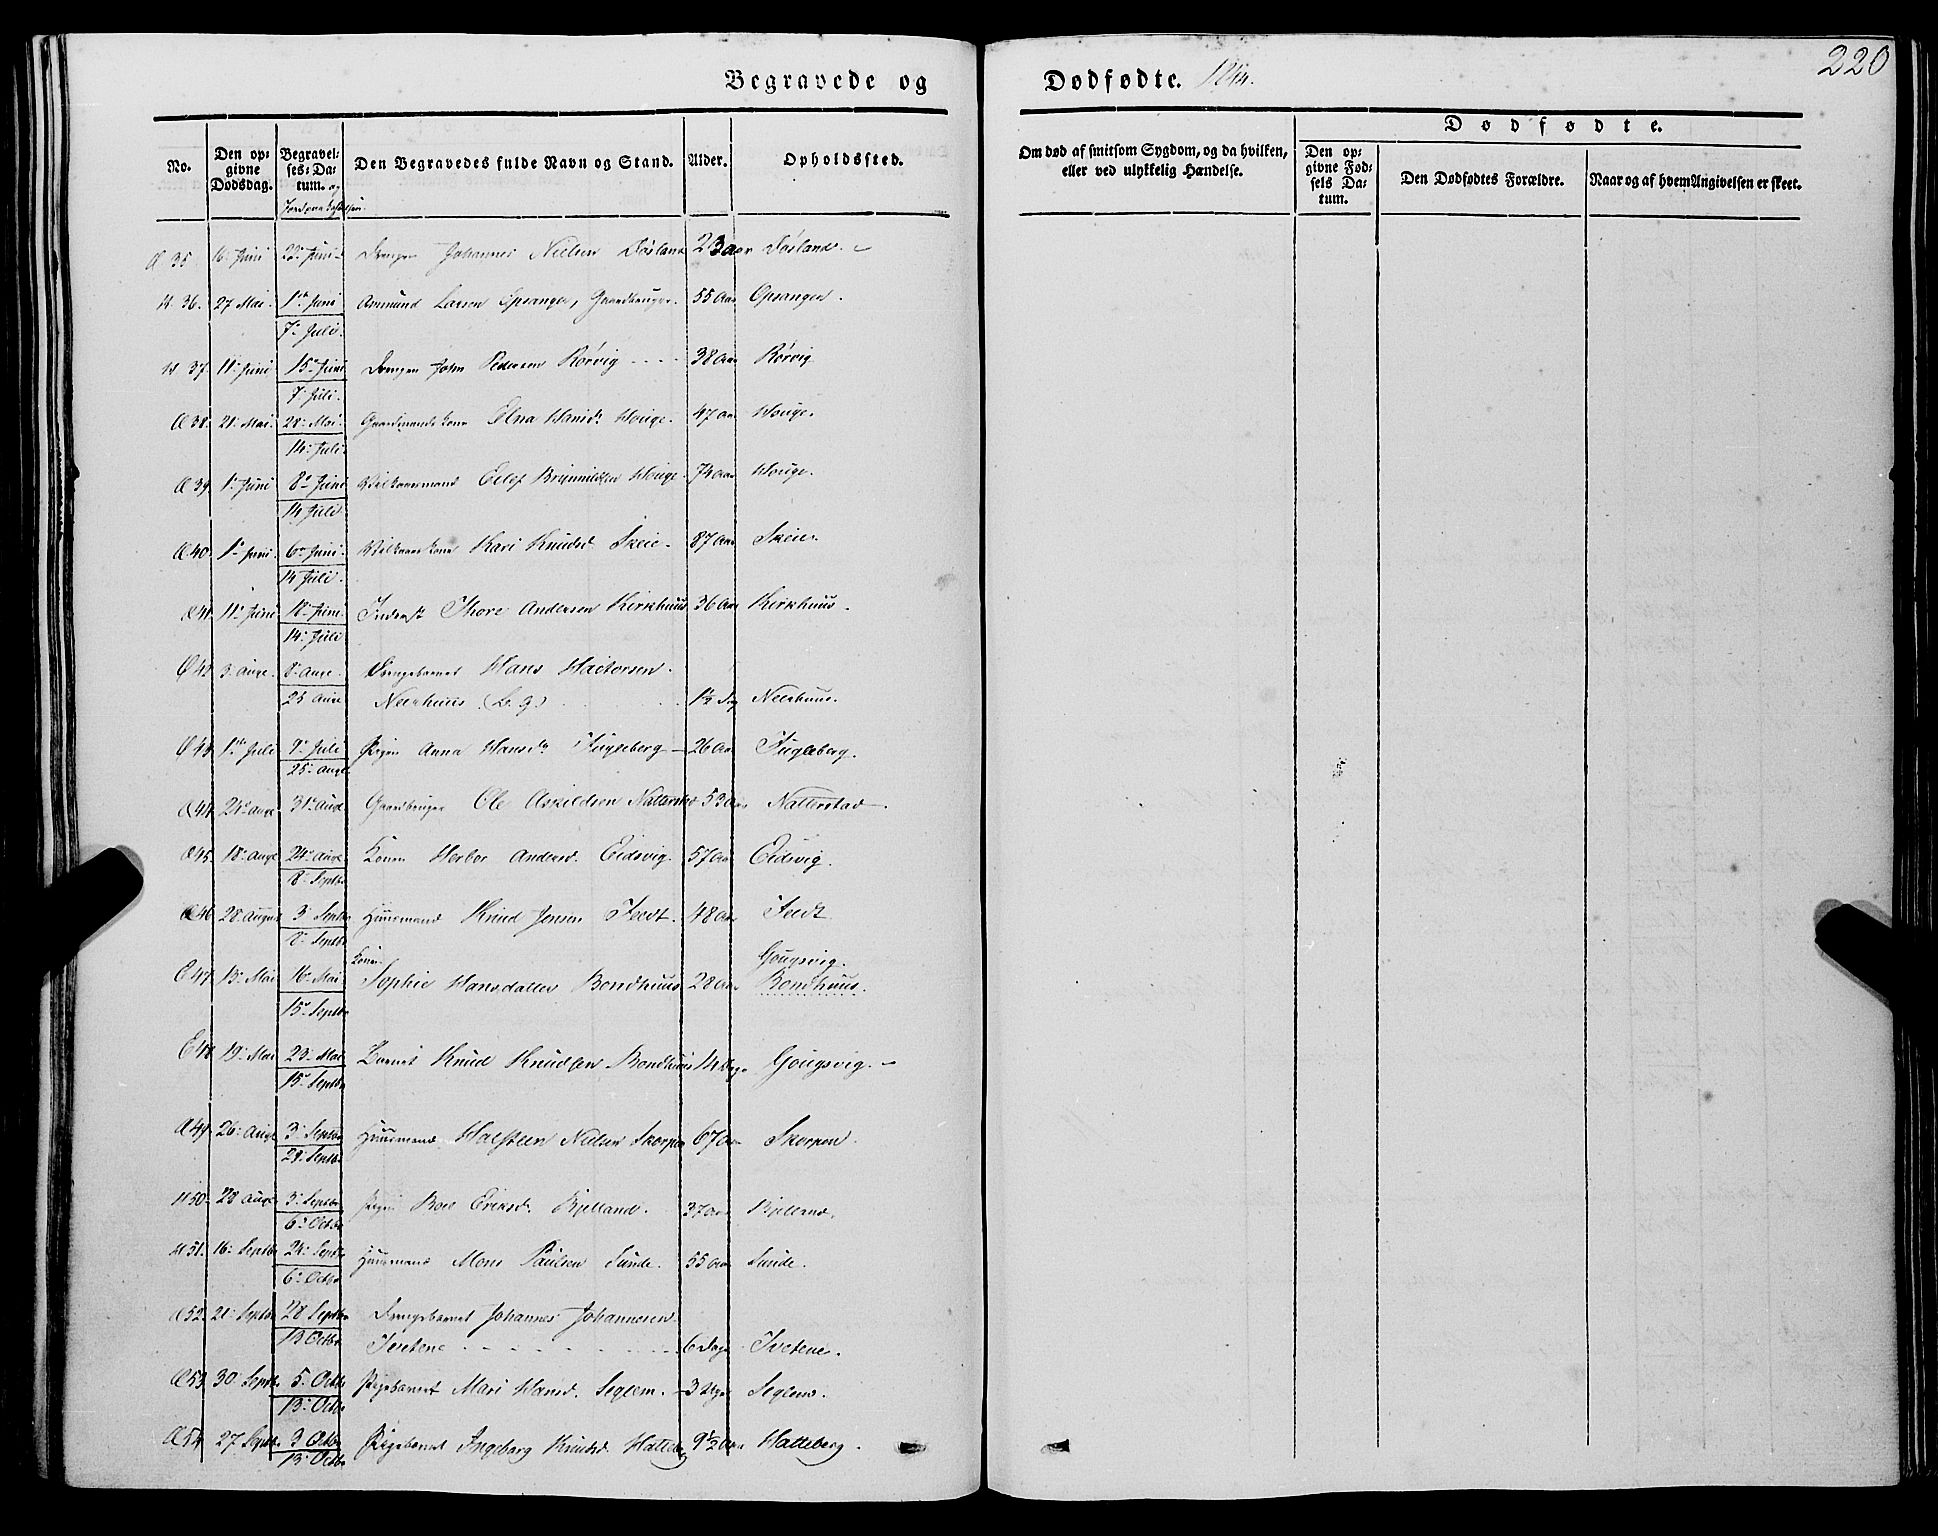 220
Begravede og Dødfødte. 1844.
No.
Den opgivne Dødsdag.
Begravelses-Datum. og Jordpaakastelsen.
Den Begravedes fulde Navn og Stand.
Alder.
Opholdssted.
Om død af smitsom Sygdom, og da hvilken, eller ved ulykkelig Hændelse.
Dødfødte.
Den opgivne Fødsels Datum.
Den Dødfødtes Forældre.
Naar og af hvem Angivelsen er skeet.
35 16 Juni 23 Juni Drengen Johannes Nielsen 23 Aar
36. 27 Mai. 1ste Juni Ammund Larsen Gaardbruger. 55 Aar Opsanger.
7. Juli.
37. 11. Juni 15 Juni Drengen John Pedersen Rørvig 38 Aar Rørvig
7. Juli.
38. 21. Mai. 28. Mai. Gaardmandskone Elna Hansd. Houge. 47 Aar Houge.
14. Juli.
39. 1. Juni 8. Juni Vilkaarsmand Brynnildsen Houge. 74 Aar Houge.
14 Juli
40. 1. Juni 6. Juni. Vilkaarskone Kari Knudsd. Skeie. 87 Aar Skeie.
14 Juli.
41. 11. Juni 18. Juni. Inderst Thore Andersen Kirkhuus 36 Aar Kirkhuus.
14. Juli
42 3. Aug. 8. Aug. Drengebarnet Hans
25 Aug. Neerhuus 1½ Dag Neerhuus.
43 1ste Juli 7. Juli Pigen Anna Hansd. Fugleberg 26 Aar Fugleberg.
25. Aug.
44. 24. Aug. 31. Aug Gaardbruger Ole Askildsen Natterstad 53 Aar Natterstad.
45. 18. Aug 24. Aug Konen Herbor Andersd. Eidsvig. 57 Aar Eidsvig.
8. Septbr
46 28. August 3. Septbr Huusmand Knud Jensen 48 Aar
8. Septbr
Konen Gougsvig.
47 13. Mai 16. Mai Sophie Hansdatter Bondhuus 28 Aar Bondhuus.
15. Septbr
48 19. Mai 23. Mai Barnet Knud Knudsen Bondhuus 14 Dage Gougsvig.
15. Septbr
49. 26. Aug. 3. Septbr Huusmand Halsteen Nielsen Skorpen 67 Aar Skorpen.
29. Septbr
50. 28 Aug. 3. Septbr Pigen Boel Eriksd. Bjelland. 37 Aar Bjelland.
6. Octbr
51. 16. Septbr 24. Septbr Huusmand Mons Paulsen Sunde. 55 Aar Sunde.
6. Octbr
52. 21. Septbr 28 Septbr Drengebarnet Johannes Johannesen
13 Octbr Tvetene 6 Dage Tvetene.
53 30. Septbr. 5. Octbr Pigebarnet Mari Hansd. Seglem. 3 Uger Seglem.
13. Octbr
54 27. Septbr. 3 Octbr Pigebarnet Ingeborg Knudsd. Hatteberg 9½ Aar Hatteberg.
13 Octbr